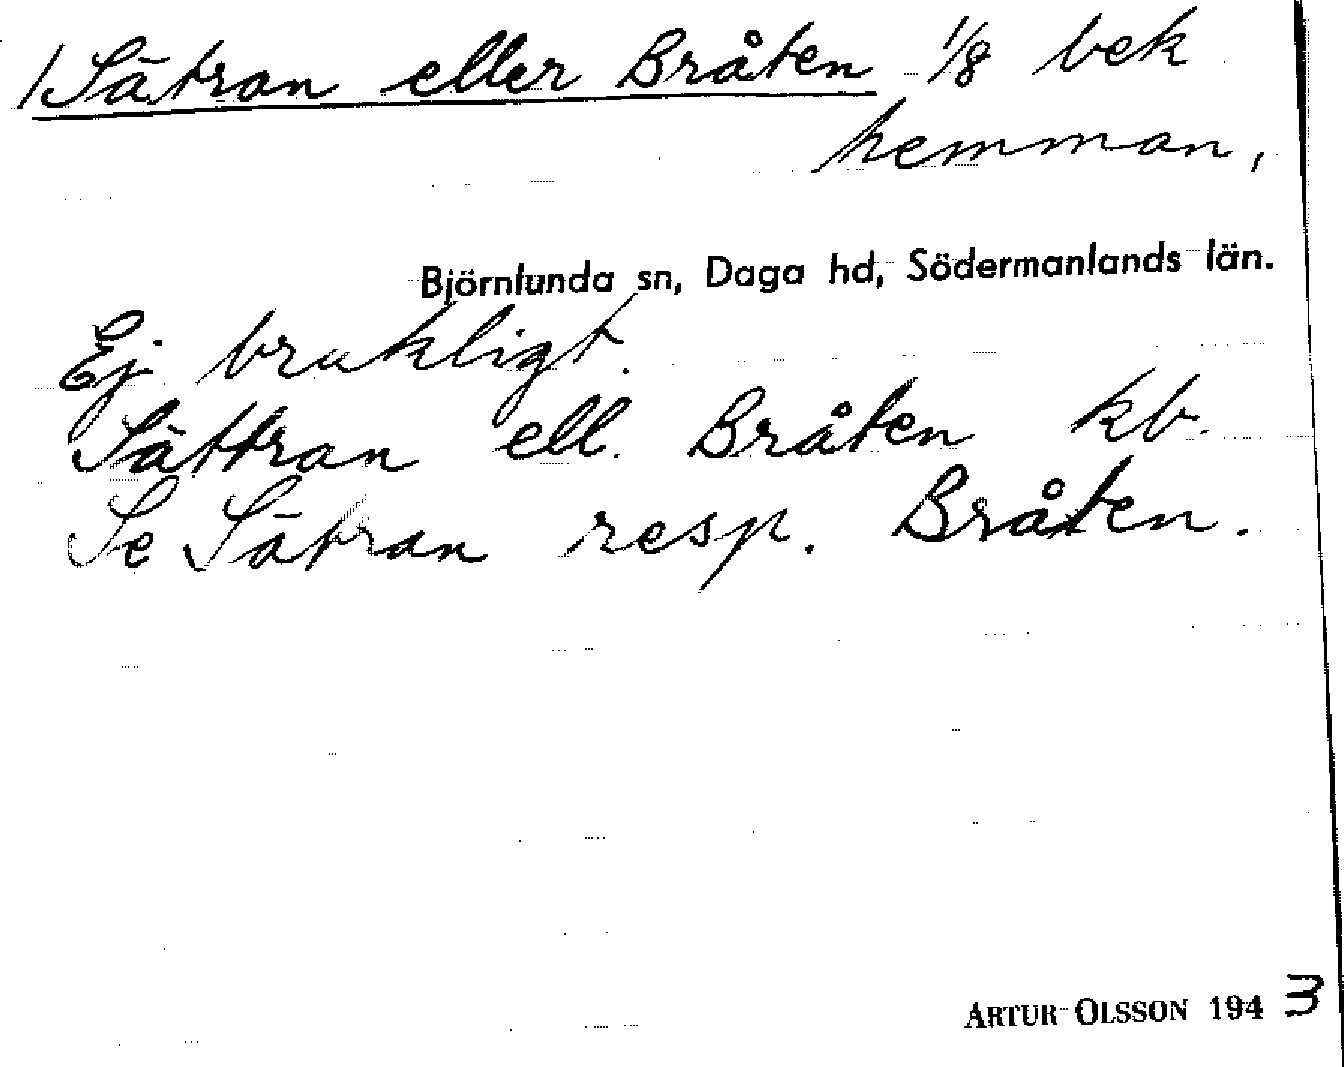 /Sätran eller Bråten 1/8 bek
hemman,
Björnlunda sn, Daga hd, Södermanlands län.
Ej brukligt.
Sättran ell. Bråten kb.
Se Sätran resp. Bråten.
ARTUR OLSSON 1943